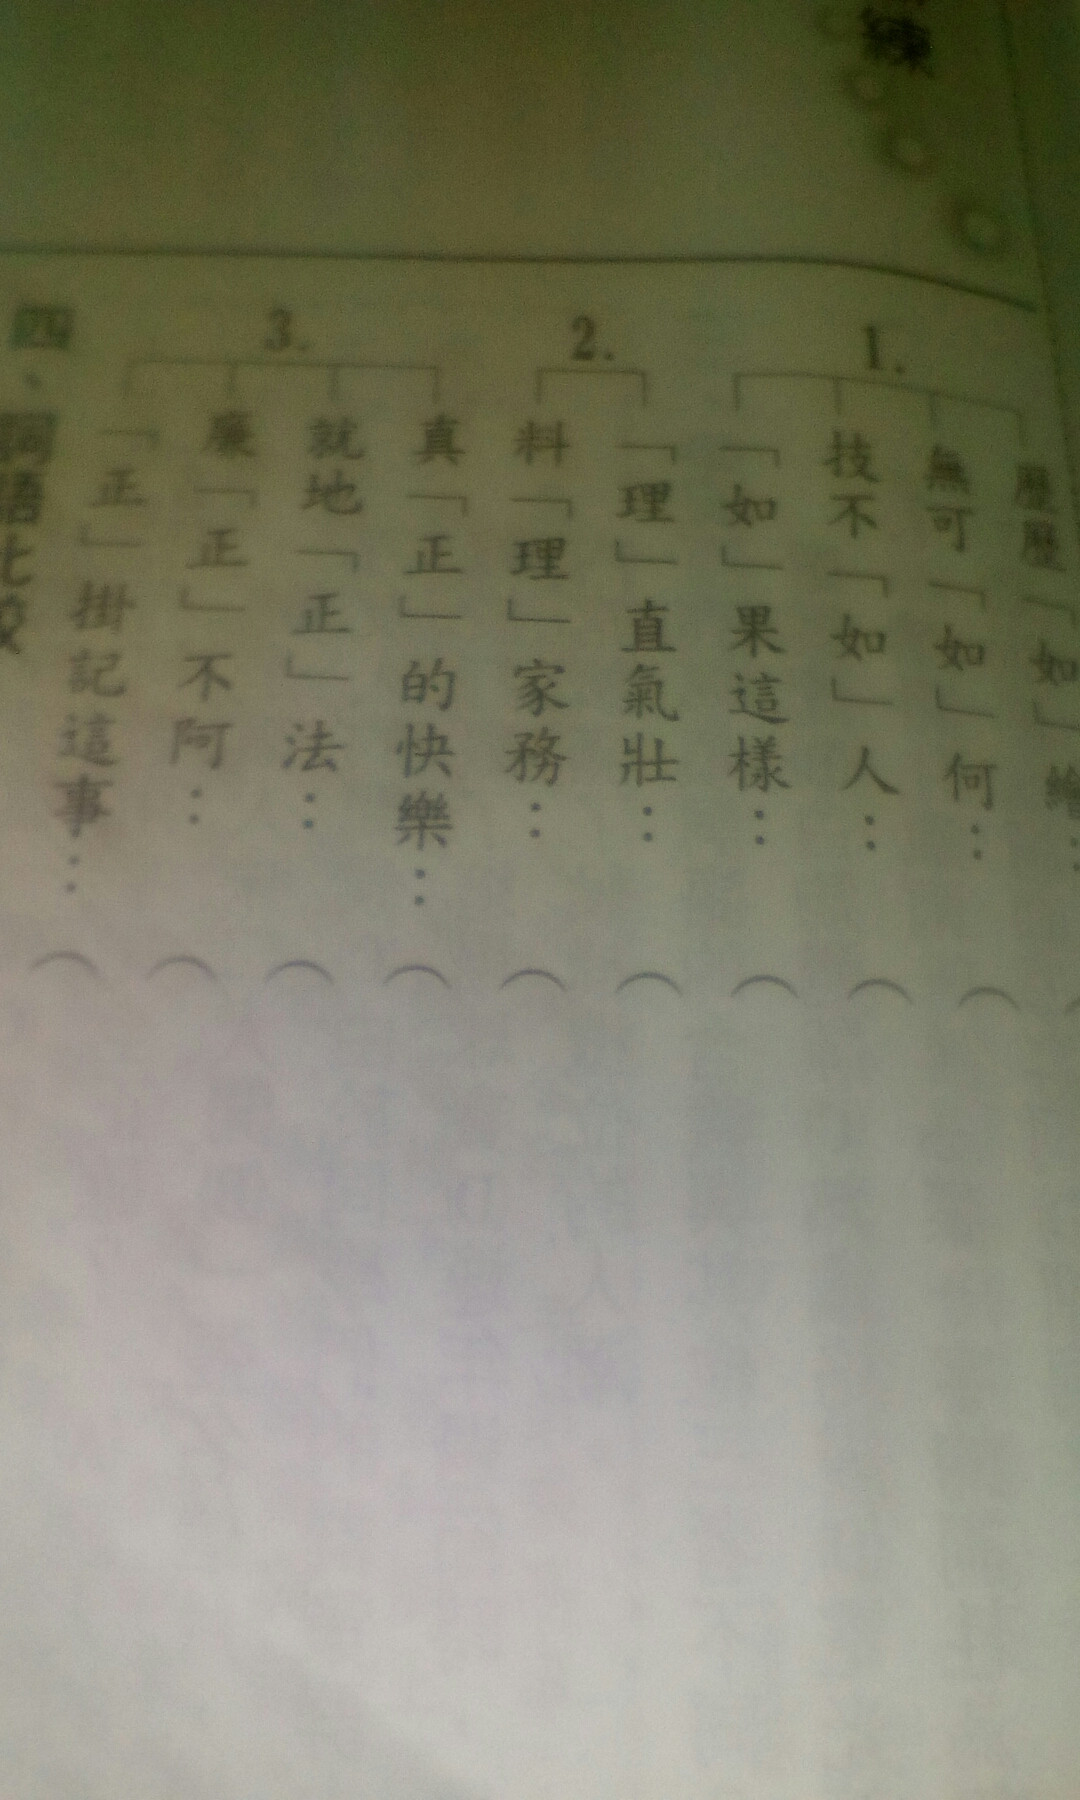 練
1.
歷歷「如」繪：（
無可「如」何：（
技不「如」人：（
「如」果這樣：（
2.
「理」直氣壯：（
料「理」家務：（
3.
真「正」的快樂：（
就地「正」法：（
廉「正」不阿：（
「正」掛記這事：（
四、詞語比較